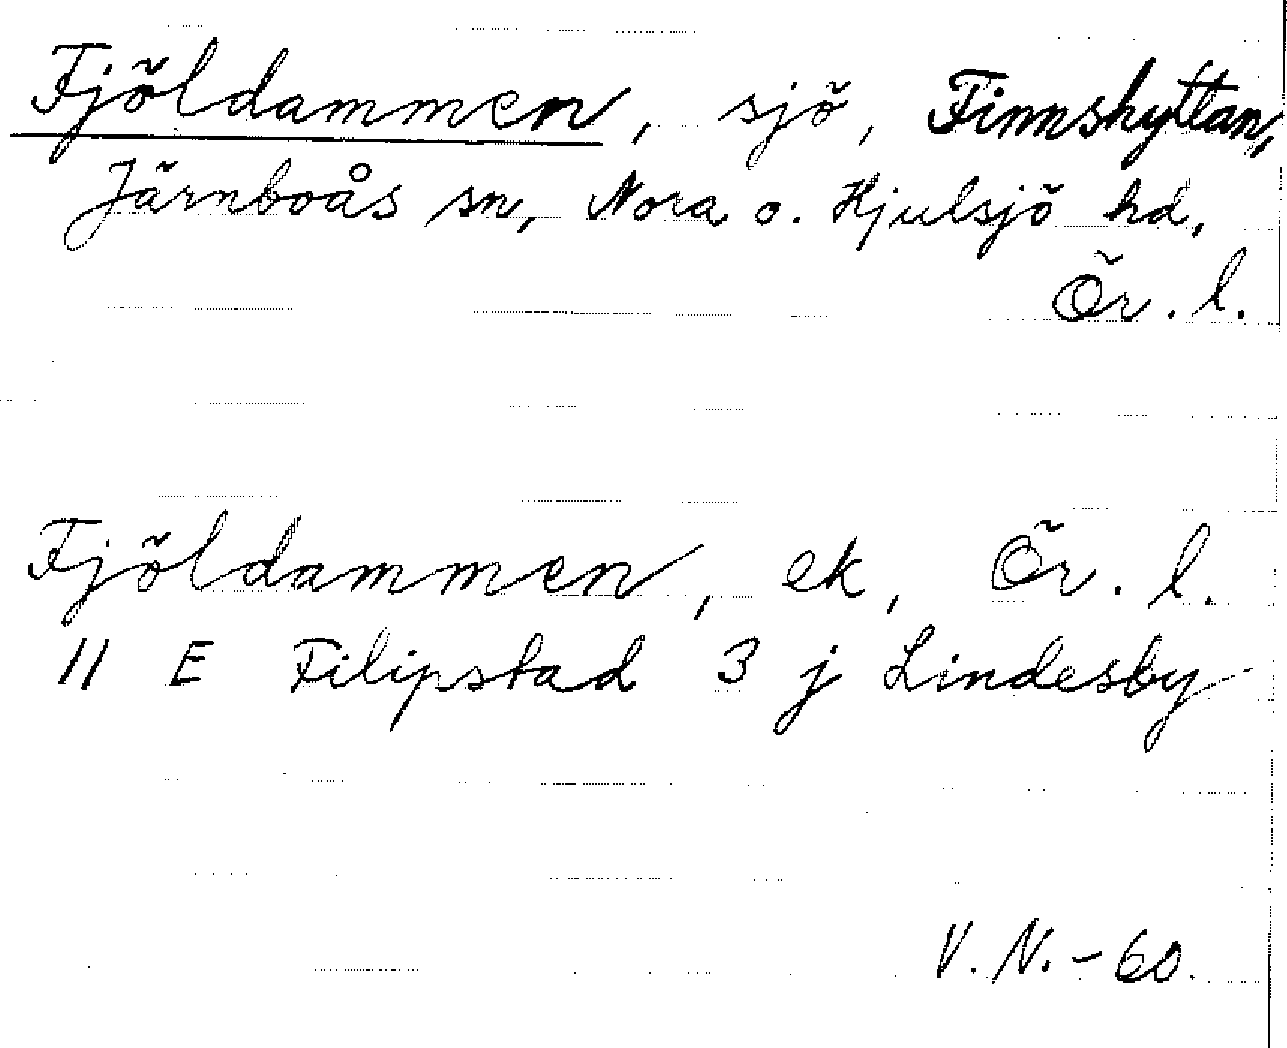 Fjöldammen, sjö, Finnshyttan,
Järnboås sn, Nora o. Hjulsjö hd,
Ör. l.
Fjöldammen, ek, Ör. l.
11 E Filipstad 3 j Lindesby
V. N. - 60.